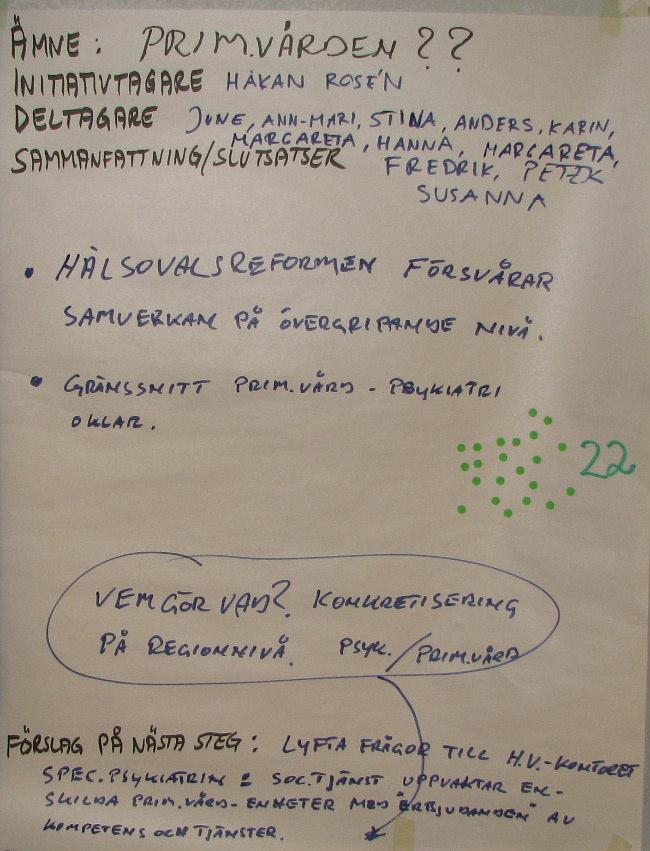 ÄMNE: PRIM.VÅRDEN??
INITIATIVTAGARE HÅKAN ROSÉN
DELTAGARE JUNE, ANN-MARI, STINA, ANDERS, KARIN,
MARGARETA, HANNA, MARGARETA,
SAMMANFATTNING/SLUTSATSER FREDRIK, PETER
SUSANNA
• HÄLSOVALSREFORMEN FÖRSVÅRAR
SAMVERKAN PÅ ÖVERGRIPANDE NIVÅ.
• GRÄNSSNITT PRIM.VÅRD - PSYKIATRI
OKLAR.
22
VEM GÖR VAD? KONKRETISERING
PÅ REGIONNIVÅ. PSYK./PRIM.VÅRD
FÖRSLAG PÅ NÄSTA STEG: LYFTA FRÅGOR TILL H.V.-KONTORET
SPEC.PSYKIATRIN & SOC.TJÄNST UPPVAKTAR EN-
SKILDA PRIM.VÅRD-ENHETER MED "ERBJUDANDEN" AV
KOMPETENS OCH TJÄNSTER.